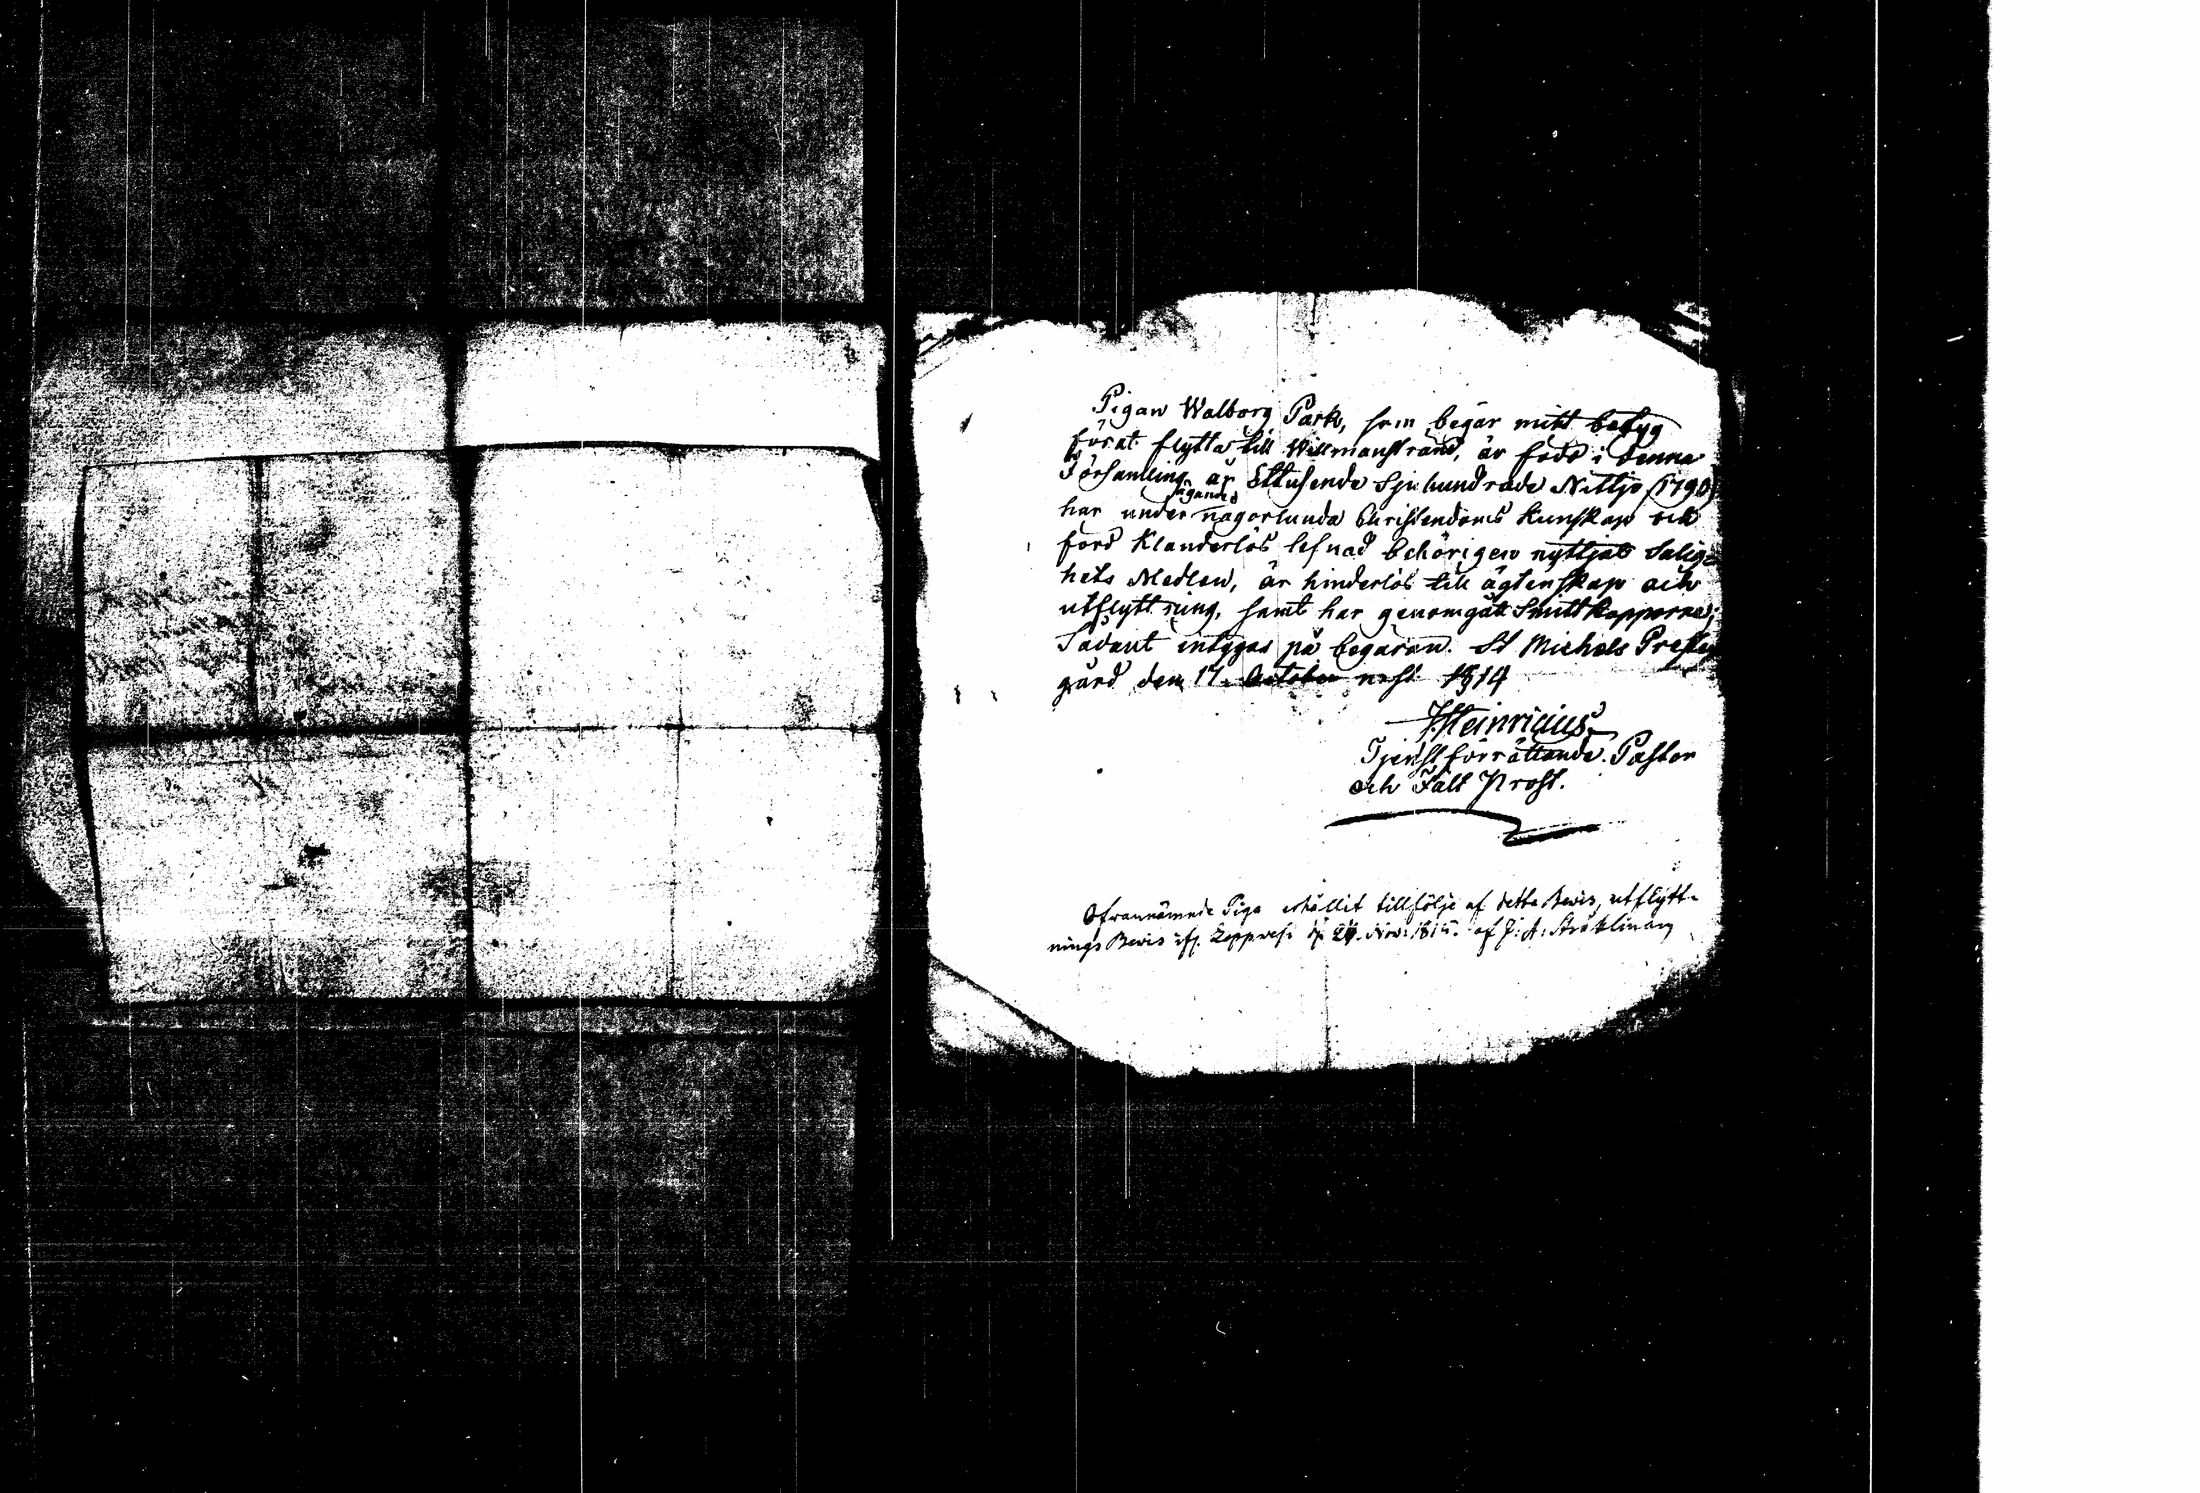 Pigan Walborg Park, som begär mitt betyg
förat flytta till Willmanstrand, är född i denna
Församling år Ettusende Sjuhundrade Nittjo (1790)
har under någorlunda Christendoms kunskap och
förd klanderlös lefnad behörigen nyttjat Salig=
hets Medlen, är hinderlös till ägtenskap och
utflyttning, samt har genomgått Smittkopporna;
Sådant intygas på begäran. St Michels Preste
gård den 17. October 1814
Heinricius
Tjenstförrättande Pastor
och Fält Prost.
Ofvannämnde Piga erhållit tillfölje af detta Bewis, utflytt-
nings Bewis Nov: af J: A: Stråhlman